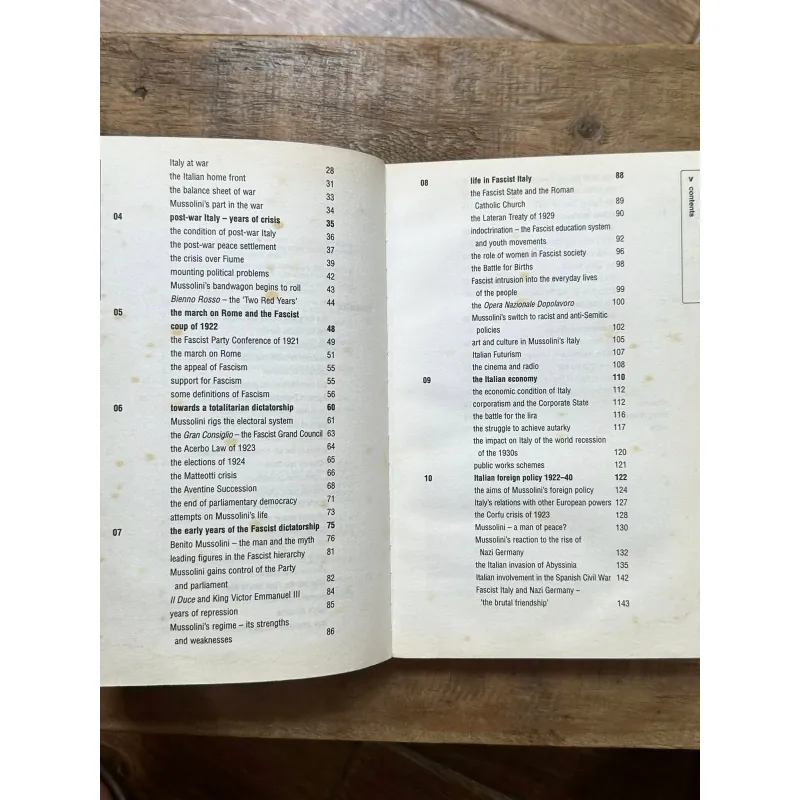 Italy at war 28
the Italian home front 31
the balance sheet of war 33
Mussolini's part in the war 34
04 post-war Italy – years of crisis 35
the condition of post-war Italy 36
the post-war peace settlement 37
the crisis over Fiume 39
mounting political problems 42
Mussolini's bandwagon begins to roll 43
Bienno Rosso – the 'Two Red Years' 44
05 the march on Rome and the Fascist
coup of 1922 48
the Fascist Party Conference of 1921 49
the march on Rome 51
the appeal of Fascism 55
support for Fascism 55
some definitions of Fascism 56
06 towards a totalitarian dictatorship 60
Mussolini rigs the electoral system 61
the Gran Consiglio – the Fascist Grand Council 63
the Acerbo Law of 1923 64
the elections of 1924 65
the Matteotti crisis 66
the Aventine Succession 68
the end of parliamentary democracy 71
attempts on Mussolini's life 73
07 the early years of the Fascist dictatorship 75
Benito Mussolini – the man and the myth 76
leading figures in the Fascist hierarchy 81
Mussolini gains control of the Party
and parliament 82
Il Duce and King Victor Emmanuel III 84
years of repression 85
Mussolini's regime – its strengths
and weaknesses 86
08 life in Fascist Italy 88
the Fascist State and the Roman
Catholic Church 89
the Lateran Treaty of 1929 90
indoctrination – the Fascist education system
and youth movements 92
the role of women in Fascist society 96
the Battle for Births 98
Fascist intrusion into the everyday lives
of the people 99
the Opera Nazionale Dopolavoro 100
Mussolini's switch to racist and anti-Semitic
policies 102
art and culture in Mussolini's Italy 105
Italian Futurism 107
the cinema and radio 108
09 the Italian economy 110
the economic condition of Italy 112
corporatism and the Corporate State 112
the battle for the lira 116
the struggle to achieve autarky 117
the impact on Italy of the world recession
of the 1930s 120
public works schemes 121
10 Italian foreign policy 1922–40 122
the aims of Mussolini's foreign policy 124
Italy's relations with other European powers 127
the Corfu crisis of 1923 128
Mussolini – a man of peace? 130
Mussolini's reaction to the rise of
Nazi Germany 132
the Italian invasion of Abyssinia 135
Italian involvement in the Spanish Civil War 142
Fascist Italy and Nazi Germany –
'the brutal friendship' 143
v
contents